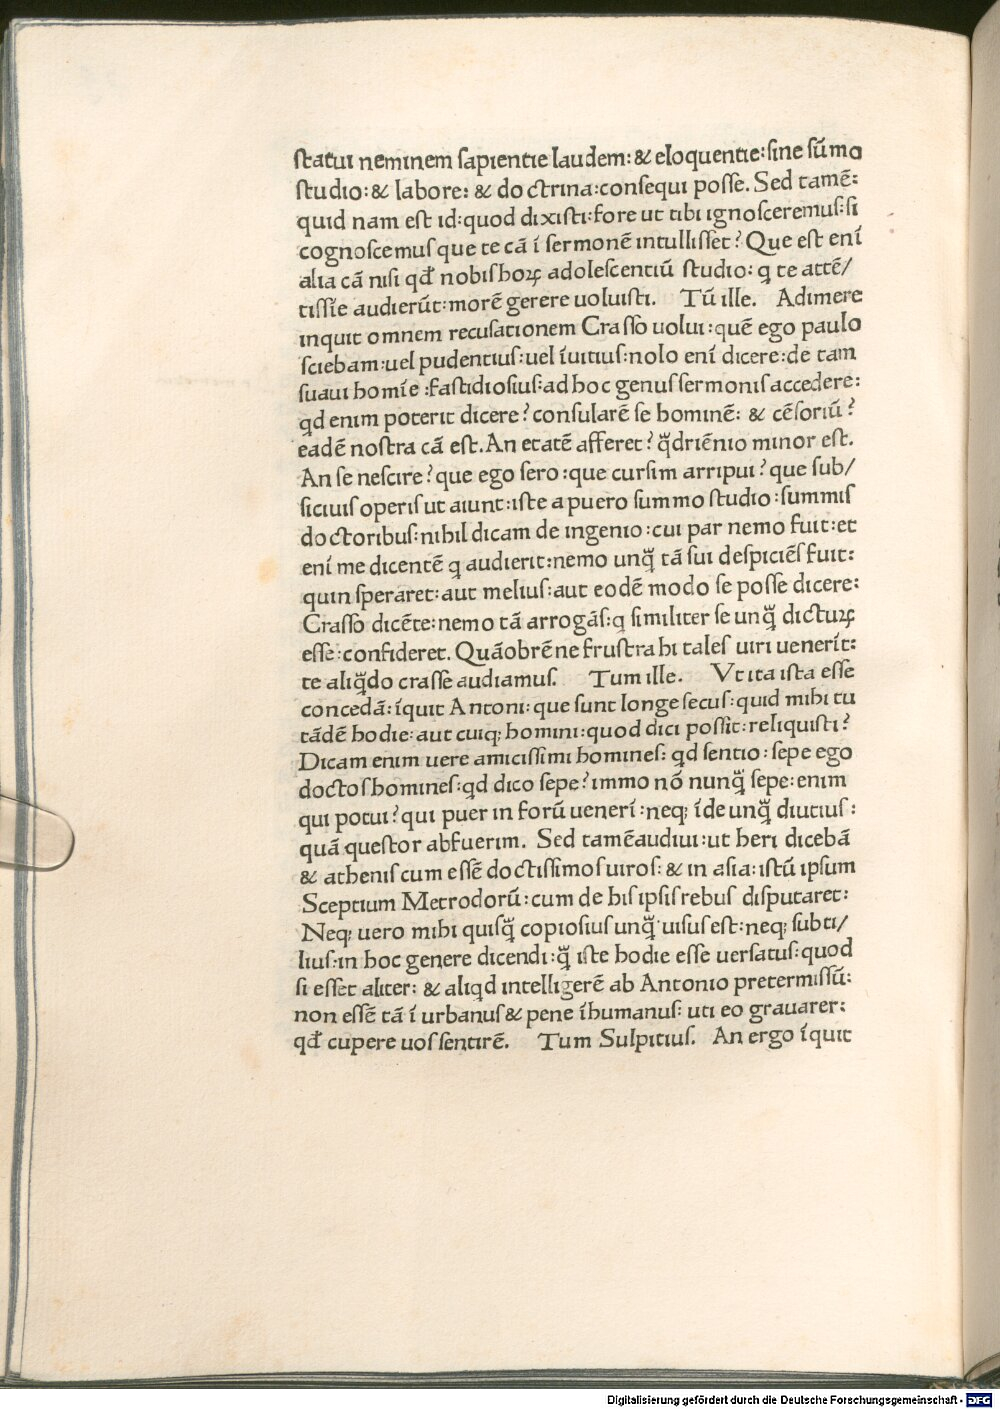 ſtatui neminem ſapientie laudem: & eloquentie: ſine ſūmo
ſtudio: & labore: & doctrina: conſequi poſſe. Sed tamē:
quid nam eſt id: quod dixiſti: fore ut tibi ignoſceremuſ: ſi
cognoſcemuſ que te cā ī ſermonē intulliſſet? Que eſt enī
alia cā niſi qđ nobiſ hoꝝ adoleſcentiū ſtudio: q te attē/
tiſſīe audierūt: morē gerere uoluiſti. Tū ille. Adimere
inquit omnem recuſationem Craſſo uolui: quē ego paulo
ſciebam: uel pudentiuſ: uel īuitiuſ: nolo enī dicere: de tam
ſuaui homīe: faſtidioſiuſ: ad hoc genuſ ſermoniſ accedere:
qd enim poterit dicere? conſularē ſe hominē: & cēſoriū?
eadē noſtra cā eſt. An etatē afferet? q̄̆driēnio minor eſt.
An ſe neſcire? que ego ſero: que curſim arripui? que ſub/
ſiciuiſ operiſ ut aiunt: iſte a puero ſummo ſtudio: ſummiſ
doctoribuſ: nihil dicam de ingenio: cui par nemo fuit: et
enī me dicentē q audierit: nemo unq̄̆ tā ſui deſpiciēſ fuit:
quin ſperaret: aut meliuſ: aut eodē modo ſe poſſe dicere:
Craſſo dicēte: nemo tā arrogāſ: q ſimiliter ſe unq̄̆ dictuꝝ
eſſe: confideret. Quāobrē ne fruſtra hi taleſ uiri uenerīt:
te aliq̄̆do craſſe audiamuſ. Tum ille. Vt ita iſta eſſe
concedā: īquit Antoni: que ſunt longe ſecuſ: quid mihi tu
tādē hodie: aut cuiq; homini: quod dici poſſit: reliquiſti?
Dicam enim uere amiciſſimi homineſ: qd ſentio: ſepe ego
doctoſ homineſ: qd dico ſepe? immo nō nunq̄̆ ſepe: enim
qui potui? qui puer in forū uenerī: neq; īde unq̄̆ diutiuſ:
quā queſtor abfuerim. Sed tamē audiui: ut heri dicebā
& atheniſ cum eſſē doctiſſimoſ uiroſ: & in aſia: iſtū ipſum
Sceptium Metrodorū: cum de hiſ ipſiſ rebuſ diſputaret:
Neq; uero mihi quiſq̄̆ copioſiuſ unq̄̆ uiſuſ eſt: neq; ſubti/
liuſ: in hoc genere dicendi: q̄̆ iſte hodie eſſe uerſatuſ: quod
ſi eſſet aliter: & aliqd intelligerē ab Antonio pretermiſſū:
non eſſē tā ī urbanuſ & pene īhumanuſ: uti eo grauarer:
qđ cupere uoſ ſentirē. Tum Sulpitiuſ. An ergo īquit
Digitalisierung gefördert durch die Deutsche Forschungsgemeinschaft - DFG